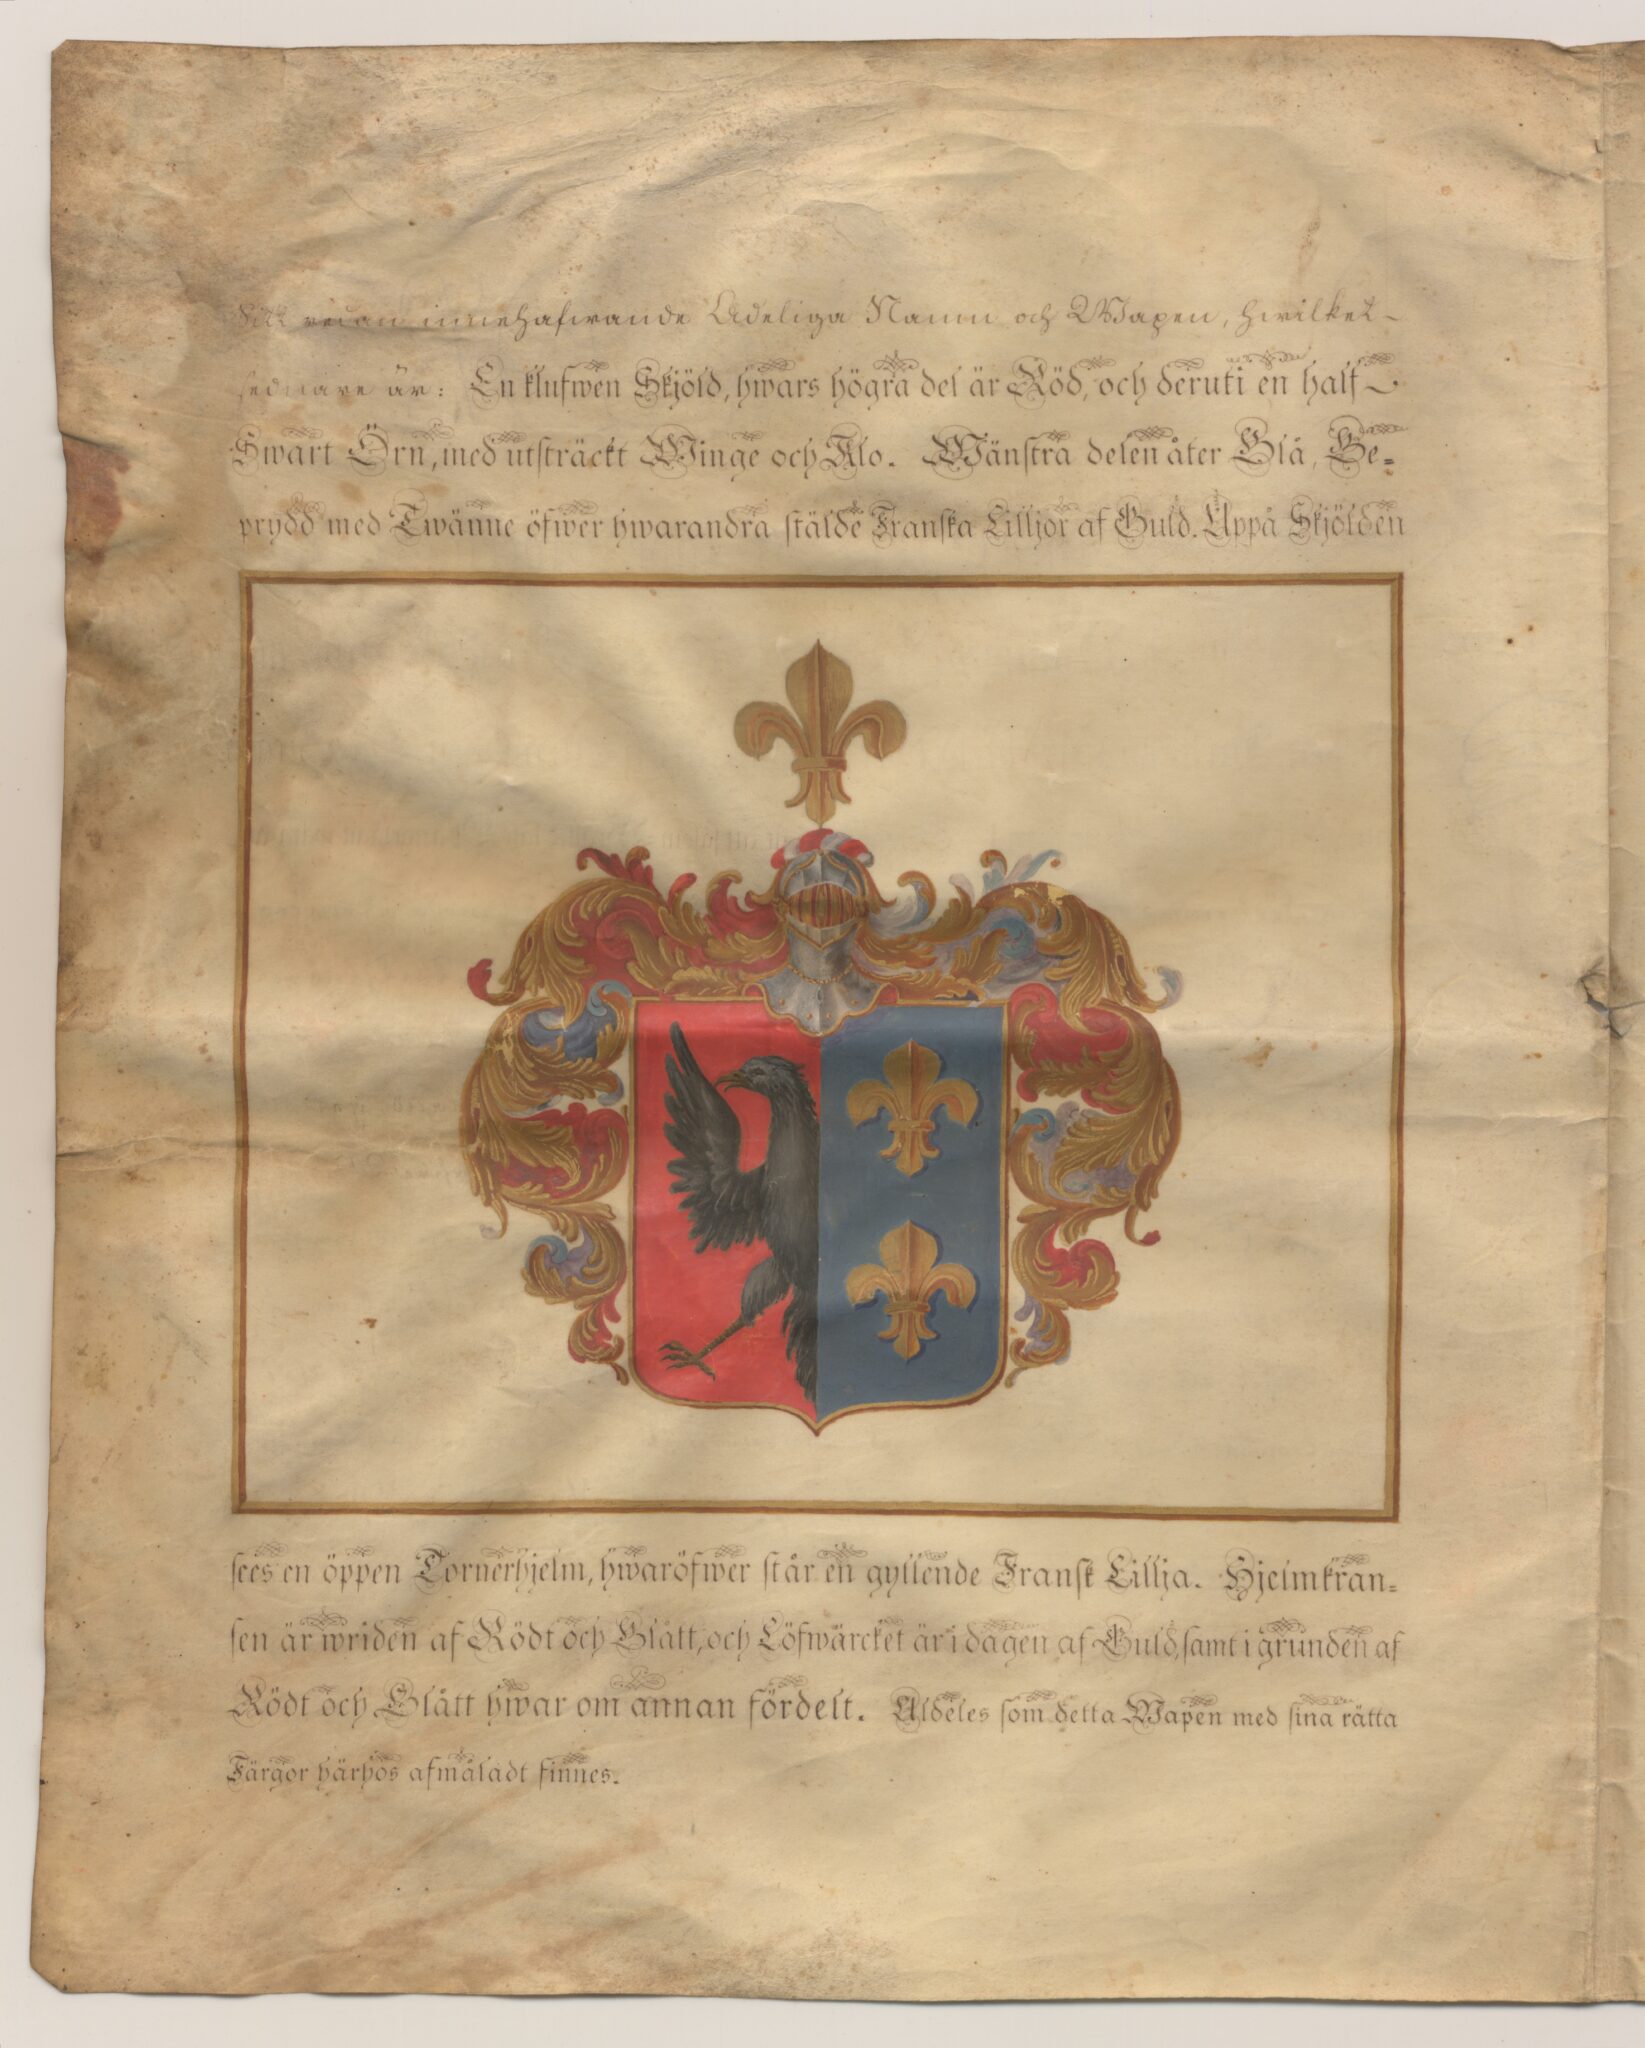 Sitt redan innehafwande Adeliga Namn och Wapen, hwilket-
sednare är: En klufwen Skjöld, hwars högra del är Röd, och deruti en half
Swart Örn, med utsträckt Winge och Klo. Wänstra delen åter Blå, Be-
prydd med Twänne öfwer hwarandra stälde Franska Lilljor af Guld. Uppå Skjölden
sees en öppen Tornerhjelm, hwaröfwer står en gyllende Fransk Lillja. Hjelmkran-
sen är wriden af Rödt och Blått, och Löfwärcket är i dagen af Guld, samt i grunden af
Rödt och Blått hwar om annan fördelt. Aldeles som detta Wapen med sina rätta
Färgor härhos afmåladt finnes.